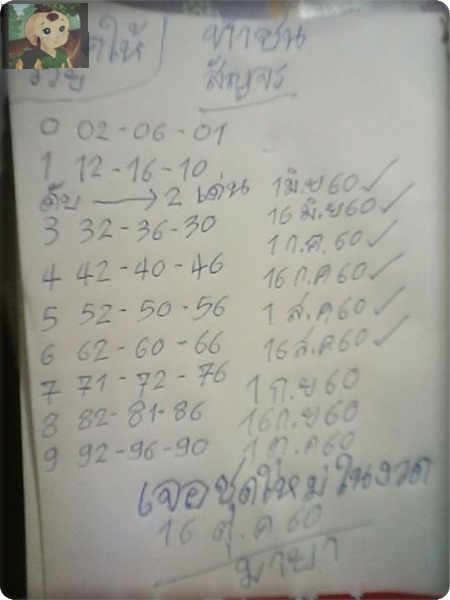 ให้ ท้าชน
รวย สัญจร
0 02-06-01
1 12-16-10
ดับ → 2 เด่น 1 มิ.ย 60 ✓
16 มิ.ย 60 ✓
3 32-36-30
1 ก.ค. 60 ✓
4 42-40-46 16 ก.ค 60 ✓
5 52-50-56 1 ส.ค 60 ✓
6 62-60-66 16 ส.ค 60 ✓
7 71-72-76 1 ก.ย 60
8 82-81-86 16 ก.ย 60
9 92-96-90 1 ต.ค 60
เจอชุดใหม่ในงวด
16 ตุ.ค 60
มายา